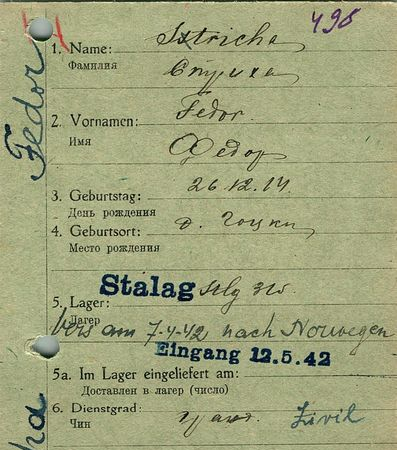 495
1. Name:
Фамилия
Стриха
2. Vornamen: Fedor
Имя
Федор
3. Geburtstag: 26.12.14
День рождения
4. Geburtsort: д.
Место рождения
Stalag Stlg
5. Lager:
Лагер
Vers am 7-4-42 nach Norwegen
Eingang 12.5.42
5a. Im Lager eingeliefert am:
Доставлен в лагер (число)
6. Dienstgrad: Zivil
Чин
Fedor